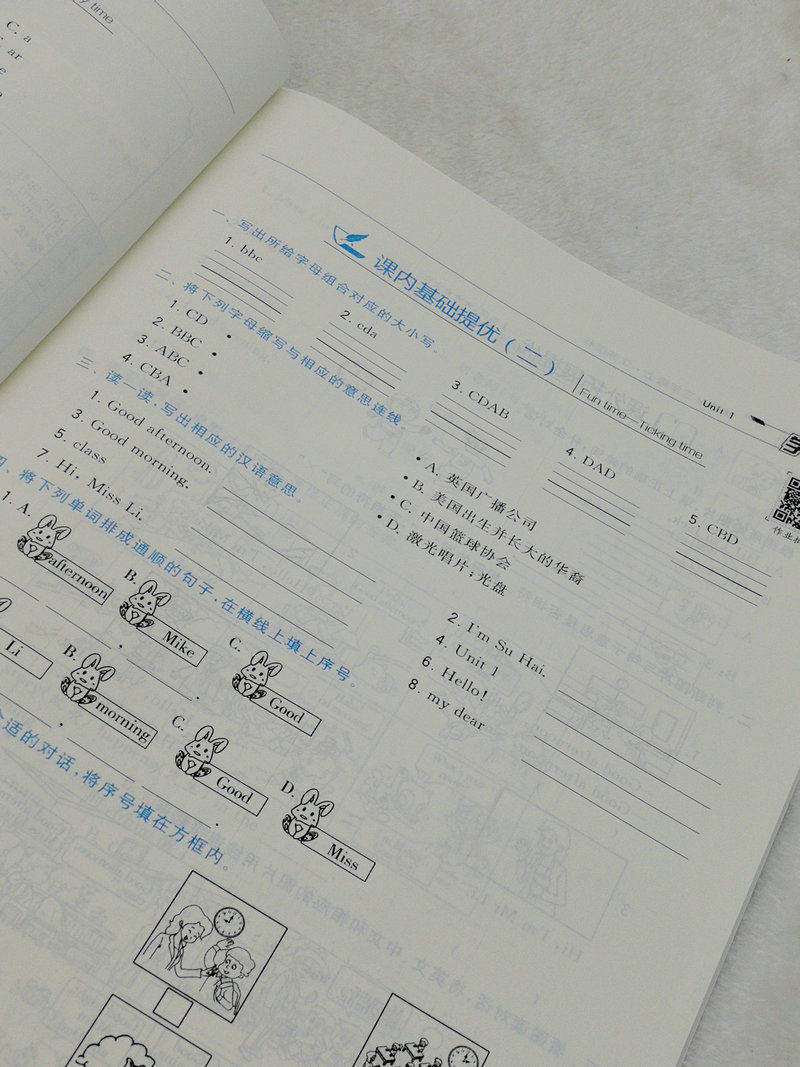 y time
C. a
ar
e
Unit 1
课内基础提优（二）
Fun time—Ticking time
一、写出所给字母组合对应的大小写。
1. bbc
2. cda
3. CDAB
4. DAD
5. CBD
二、将下列字母缩写与相应的意思连线。
1. CD •
• A. 英国广播公司
2. BBC •
• B. 美国出生并长大的华裔
3. ABC •
• C. 中国篮球协会
4. CBA •
• D. 激光唱片；光盘
三、读一读，写出相应的汉语意思。
1. Good afternoon.
2. I'm Su Hai.
3. Good morning.
4. Unit 1
5. class
6. Hello!
7. Hi, Miss Li.
8. my dear
、将下列单词排成通顺的句子，在横线上填上序号。
1. A.
afternoon
B.
Mike
C.
Good
, .
Li
B.
morning
C.
Good
D.
Miss
, .
适的对话，将序号填在方框内。